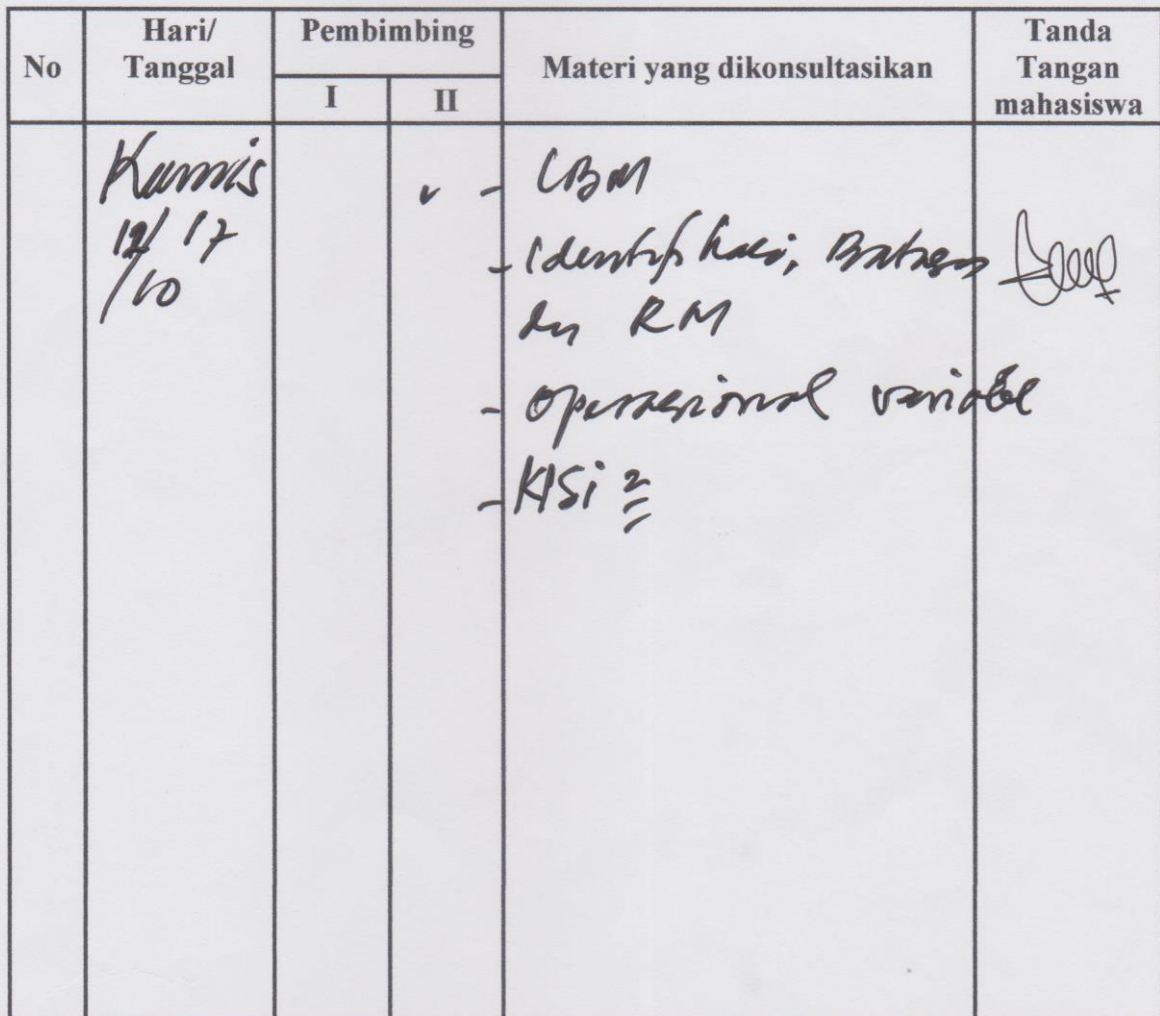 No
Hari/
Tanggal
Pembimbing
I
II
Materi yang dikonsultasikan
Tanda
Tangan
mahasiswa
Kamis
12/ 17
/10
v
- LBM
- Identifikasi, Batasan
dn RM
- Operasional variabel
- KISi 2